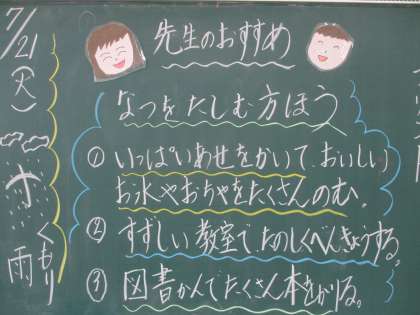 7/21
(火)
くもり
雨
先生のおすすめ
なつをたのしむ方ほう
① いっぱいあせをかいて、おいしい
お水やおちゃをたくさんのむ。
② すずしい教室でたのしくべんきょうする。
③ 図書かんでたくさん本をかりる。